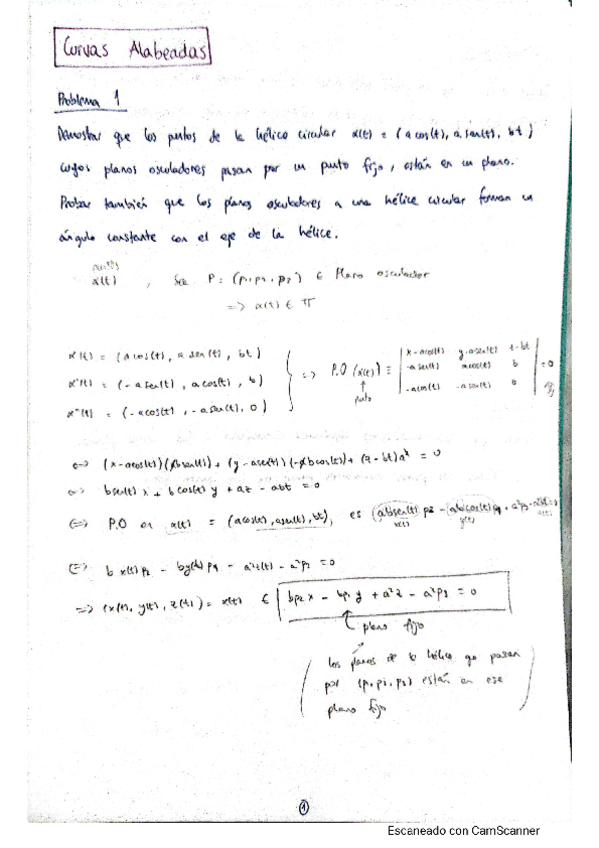 Curvas Alabeadas
Problema 1
Demostrar que los puntos de la hélice circular α(t) = (a cos(t), a sen(t), bt)
cuyos planos osculadores pasan por un punto fijo, están en un plano.
Probar también que los planos osculadores a una hélice circular forman un
ángulo constante con el eje de la hélice.
α(t) , Sea P = (p1, p2, p3) ∈ Plano osculador
=> α(t) ∈ π
α(t) = (a cos(t), a sen(t), bt)
α'(t) = (-a sen(t), a cos(t), b)
α''(t) = (-a cos(t), -a sen(t), 0)
=> P.O (α(t)) ≡ | x - a cos(t) y - a sen(t) z - bt |
| -a sen(t) a cos(t) b | = 0
| -a cos(t) -a sen(t) 0 |
punto
<=> (x - a cos(t)) (b sen(t)) + (y - a sen(t)) (-b cos(t)) + (z - bt) a = 0
<=> b sen(t) x + b cos(t) y + az - abt = 0
<=> P.O en α(t) = (a cos(t), a sen(t), bt), es
<=> b x(t) p2 - b y(t) p1 - a² z(t) - a² p3 = 0
=> (x(t), y(t), z(t)) = α(t) ∈ bp2 x - bp1 y + a² z - a² p3 = 0
plano fijo
los planos de la hélice que pasan
por (p1, p2, p3) están en ese
plano fijo
1
Escaneado con CamScanner